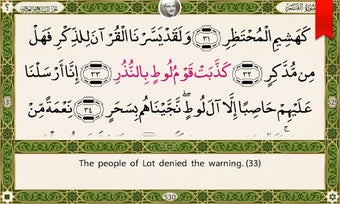 سورة القمر
كَهَشِيمِ الْمُحْتَظِرِ ﴿٣١﴾ وَلَقَدْ يَسَّرْنَا الْقُرْآنَ لِلذِّكْرِ فَهَلْ
مِن مُّدَّكِرٍ ﴿٣٢﴾ كَذَّبَتْ قَوْمُ لُوطٍ بِالنُّذُرِ ﴿٣٣﴾ إِنَّا أَرْسَلْنَا
عَلَيْهِمْ حَاصِبًا إِلَّا آلَ لُوطٍ ۖ نَّجَّيْنَاهُم بِسَحَرٍ ﴿٣٤﴾ نِّعْمَةً مِّنْ
The people of Lot denied the warning. (33)
530